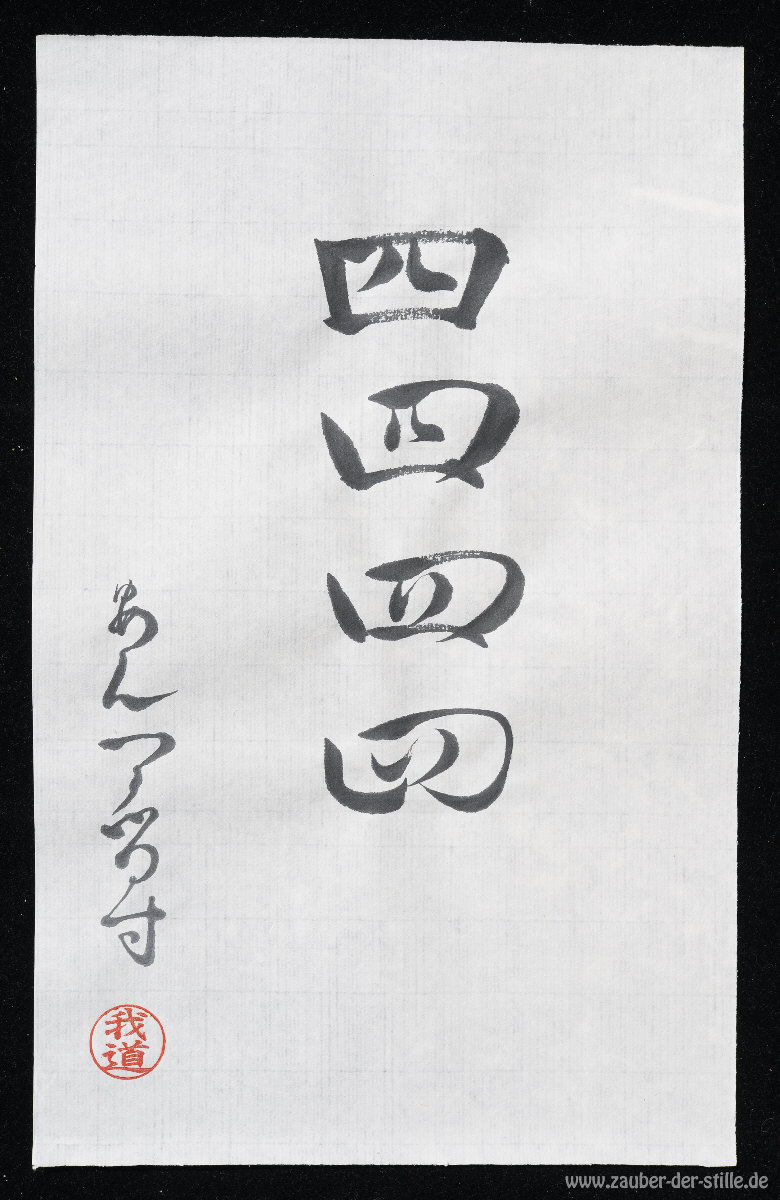 四四四四
あん
我道
www.zauber-der-stille.de